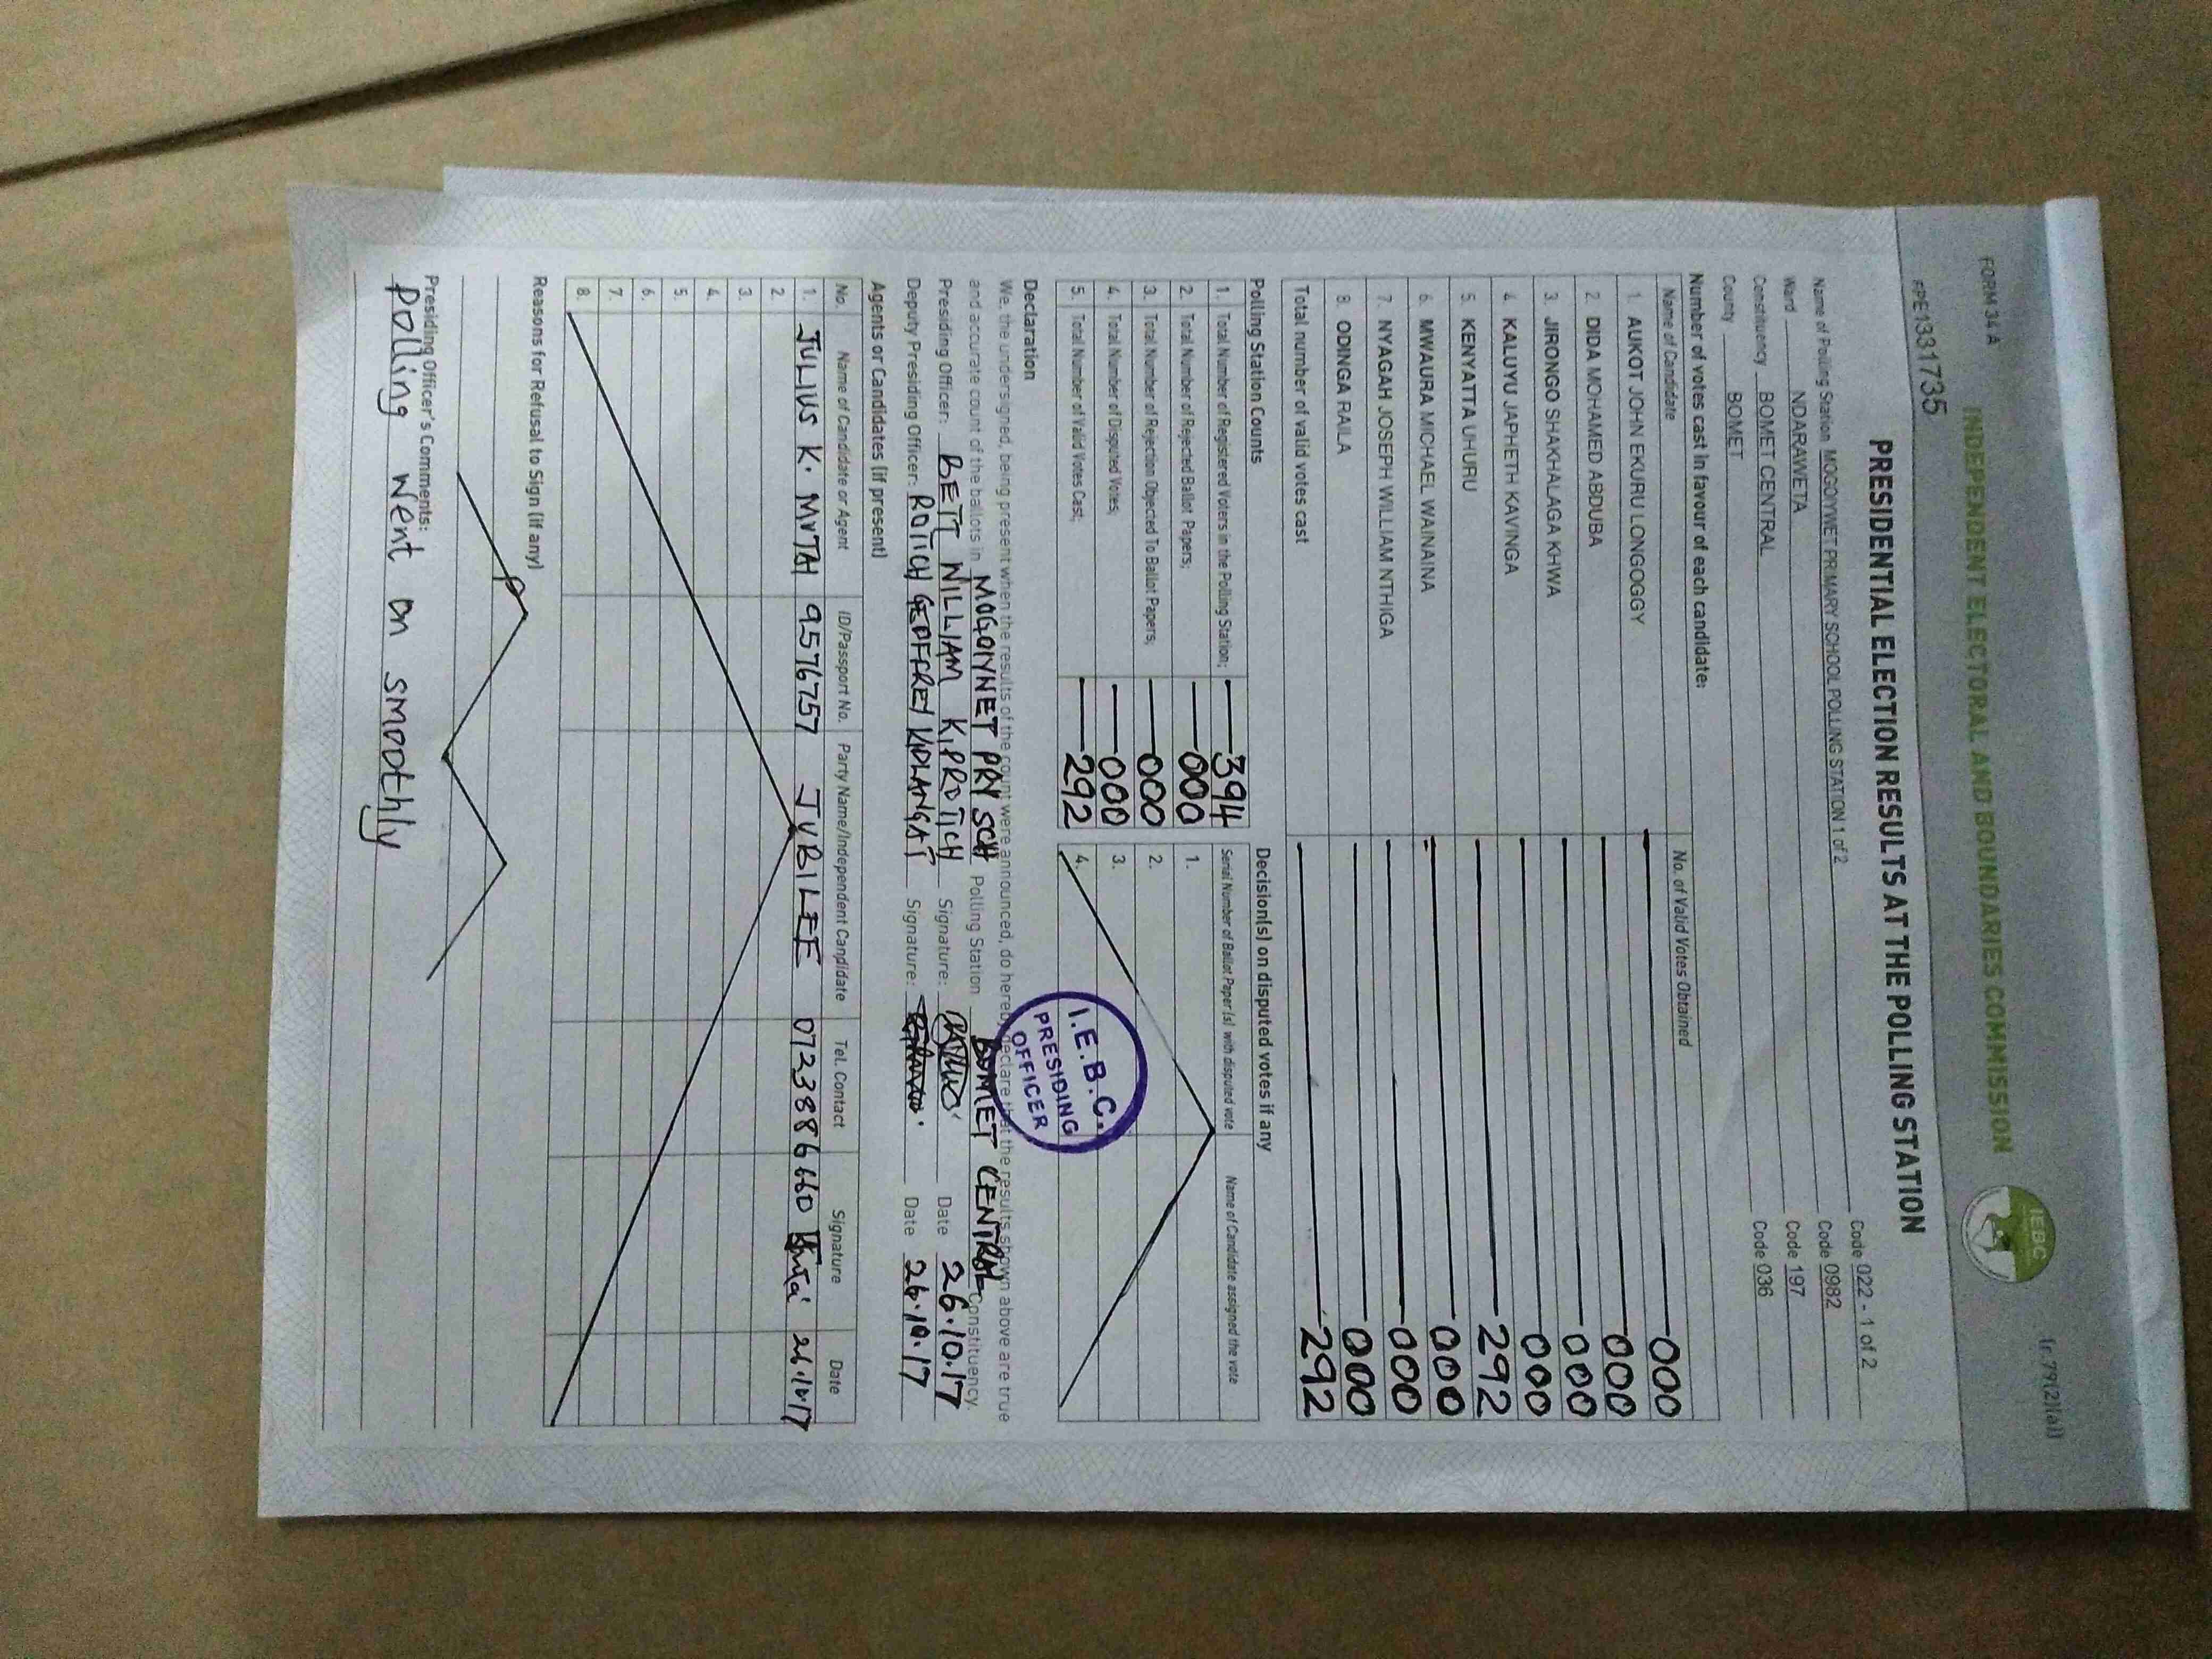 FORM 34 A
(r.79(2)(a))
INDEPENDENT ELECTORAL AND BOUNDARIES COMMISSION
IEBC
FPE1331735
PRESIDENTIAL ELECTION RESULTS AT THE POLLING STATION
Name of Polling Station MOGOIYWET PRIMARY SCHOOL POLLING STATION 1 of 2 Code 022 - 1 of 2
Ward NDARAWETA Code 0982
Constituency BOMET CENTRAL Code 197
County BOMET Code 036
Number of votes cast in favour of each candidate:
Name of Candidate No. of Valid Votes Obtained
1. AUKOT JOHN EKURU LONGOGGY 000
2. DIDA MOHAMED ABDUBA 000
3. JIRONGO SHAKHALAGA KHWA 000
4. KALUYU JAPHETH KAVINGA 000
5. KENYATTA UHURU 292
6. MWAURA MICHAEL WAINAINA 000
7. NYAGAH JOSEPH WILLIAM NTHIGA 000
8. ODINGA RAILA 000
Total number of valid votes cast 292
Polling Station Counts
1. Total Number of Registered Voters in the Polling Station; 394
2. Total Number of Rejected Ballot Papers; 000
3. Total Number of Rejection Objected To Ballot Papers; 000
4. Total Number of Disputed Votes; 000
5. Total Number of Valid Votes Cast; 292
Decision(s) on disputed votes if any
Serial Number of Ballot Paper (s) with disputed vote Name of Candidate assigned the vote
1.
2.
3.
4.
I.E.B.C.
PRESIDING
OFFICER
Declaration
We, the undersigned, being present when the results of the count were announced, do hereby declare that the results shown above are true
and accurate count of the ballots in MOGOIYNET PRY SCH Polling Station BOMET CENTRAL Constituency.
Presiding Officer: BETT WILLIAM KIPROTICH Signature: Date 26.10.17
Deputy Presiding Officer: ROTICH GEOFFREY KIPLANGAT Signature: Date 26.10.17
Agents or Candidates (if present)
No. Name of Candidate or Agent ID/Passport No. Party Name/Independent Candidate Tel. Contact Signature Date
1. JULIUS K. MUTAI 9576757 JUBILEE 0723886660 26.10.17
2.
3.
4.
5.
6.
7.
8.
Reasons for Refusal to Sign (if any)
Presiding Officer's Comments:
polling went on smoothly